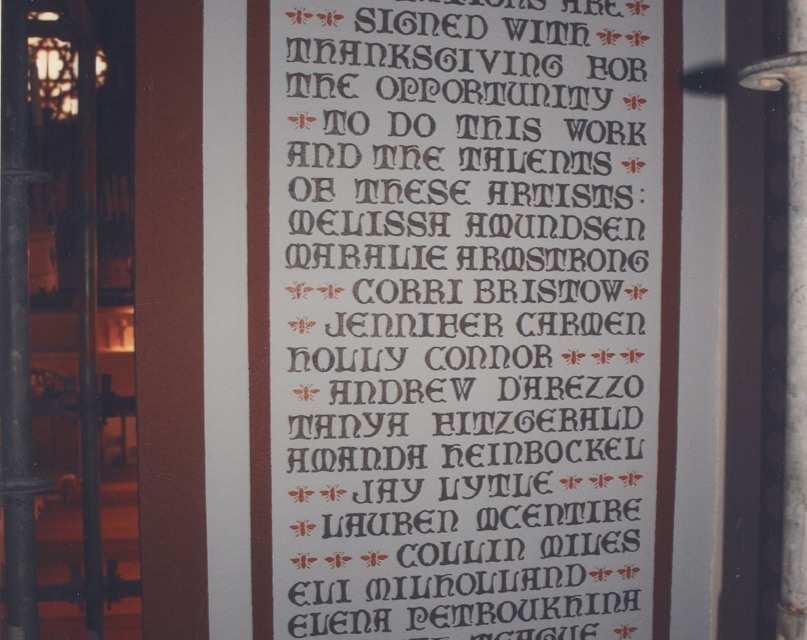 ARE
SIGNED WITH
THANKSGIVING FOR
THE OPPORTUNITY
TO DO THIS WORK
AND THE TALENTS
OF THESE ARTISTS:
MELISSA AMUNDSEN
MARALIE ARMSTRONG
CORRI BRISTOW
JENNIFER CARMEN
HOLLY CONNOR
ANDREW D'AREZZO
TANYA FITZGERALD
AMANDA HEINBOCKEL
JAY LYTLE
LAUREN MCENTIRE
COLLIN MILES
ELI MILHOLLAND
ELENA PETROUKHINA
TEAGUE